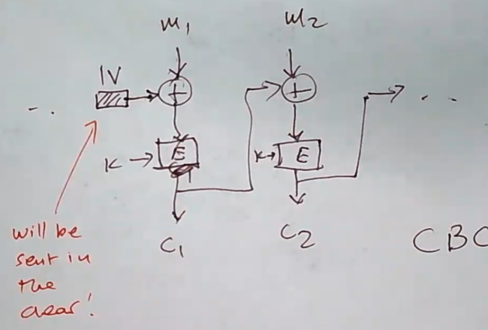 m₁
m₂
IV
K
E
K
E
C₁
C₂
will be
sent in
the
clear!
CBC